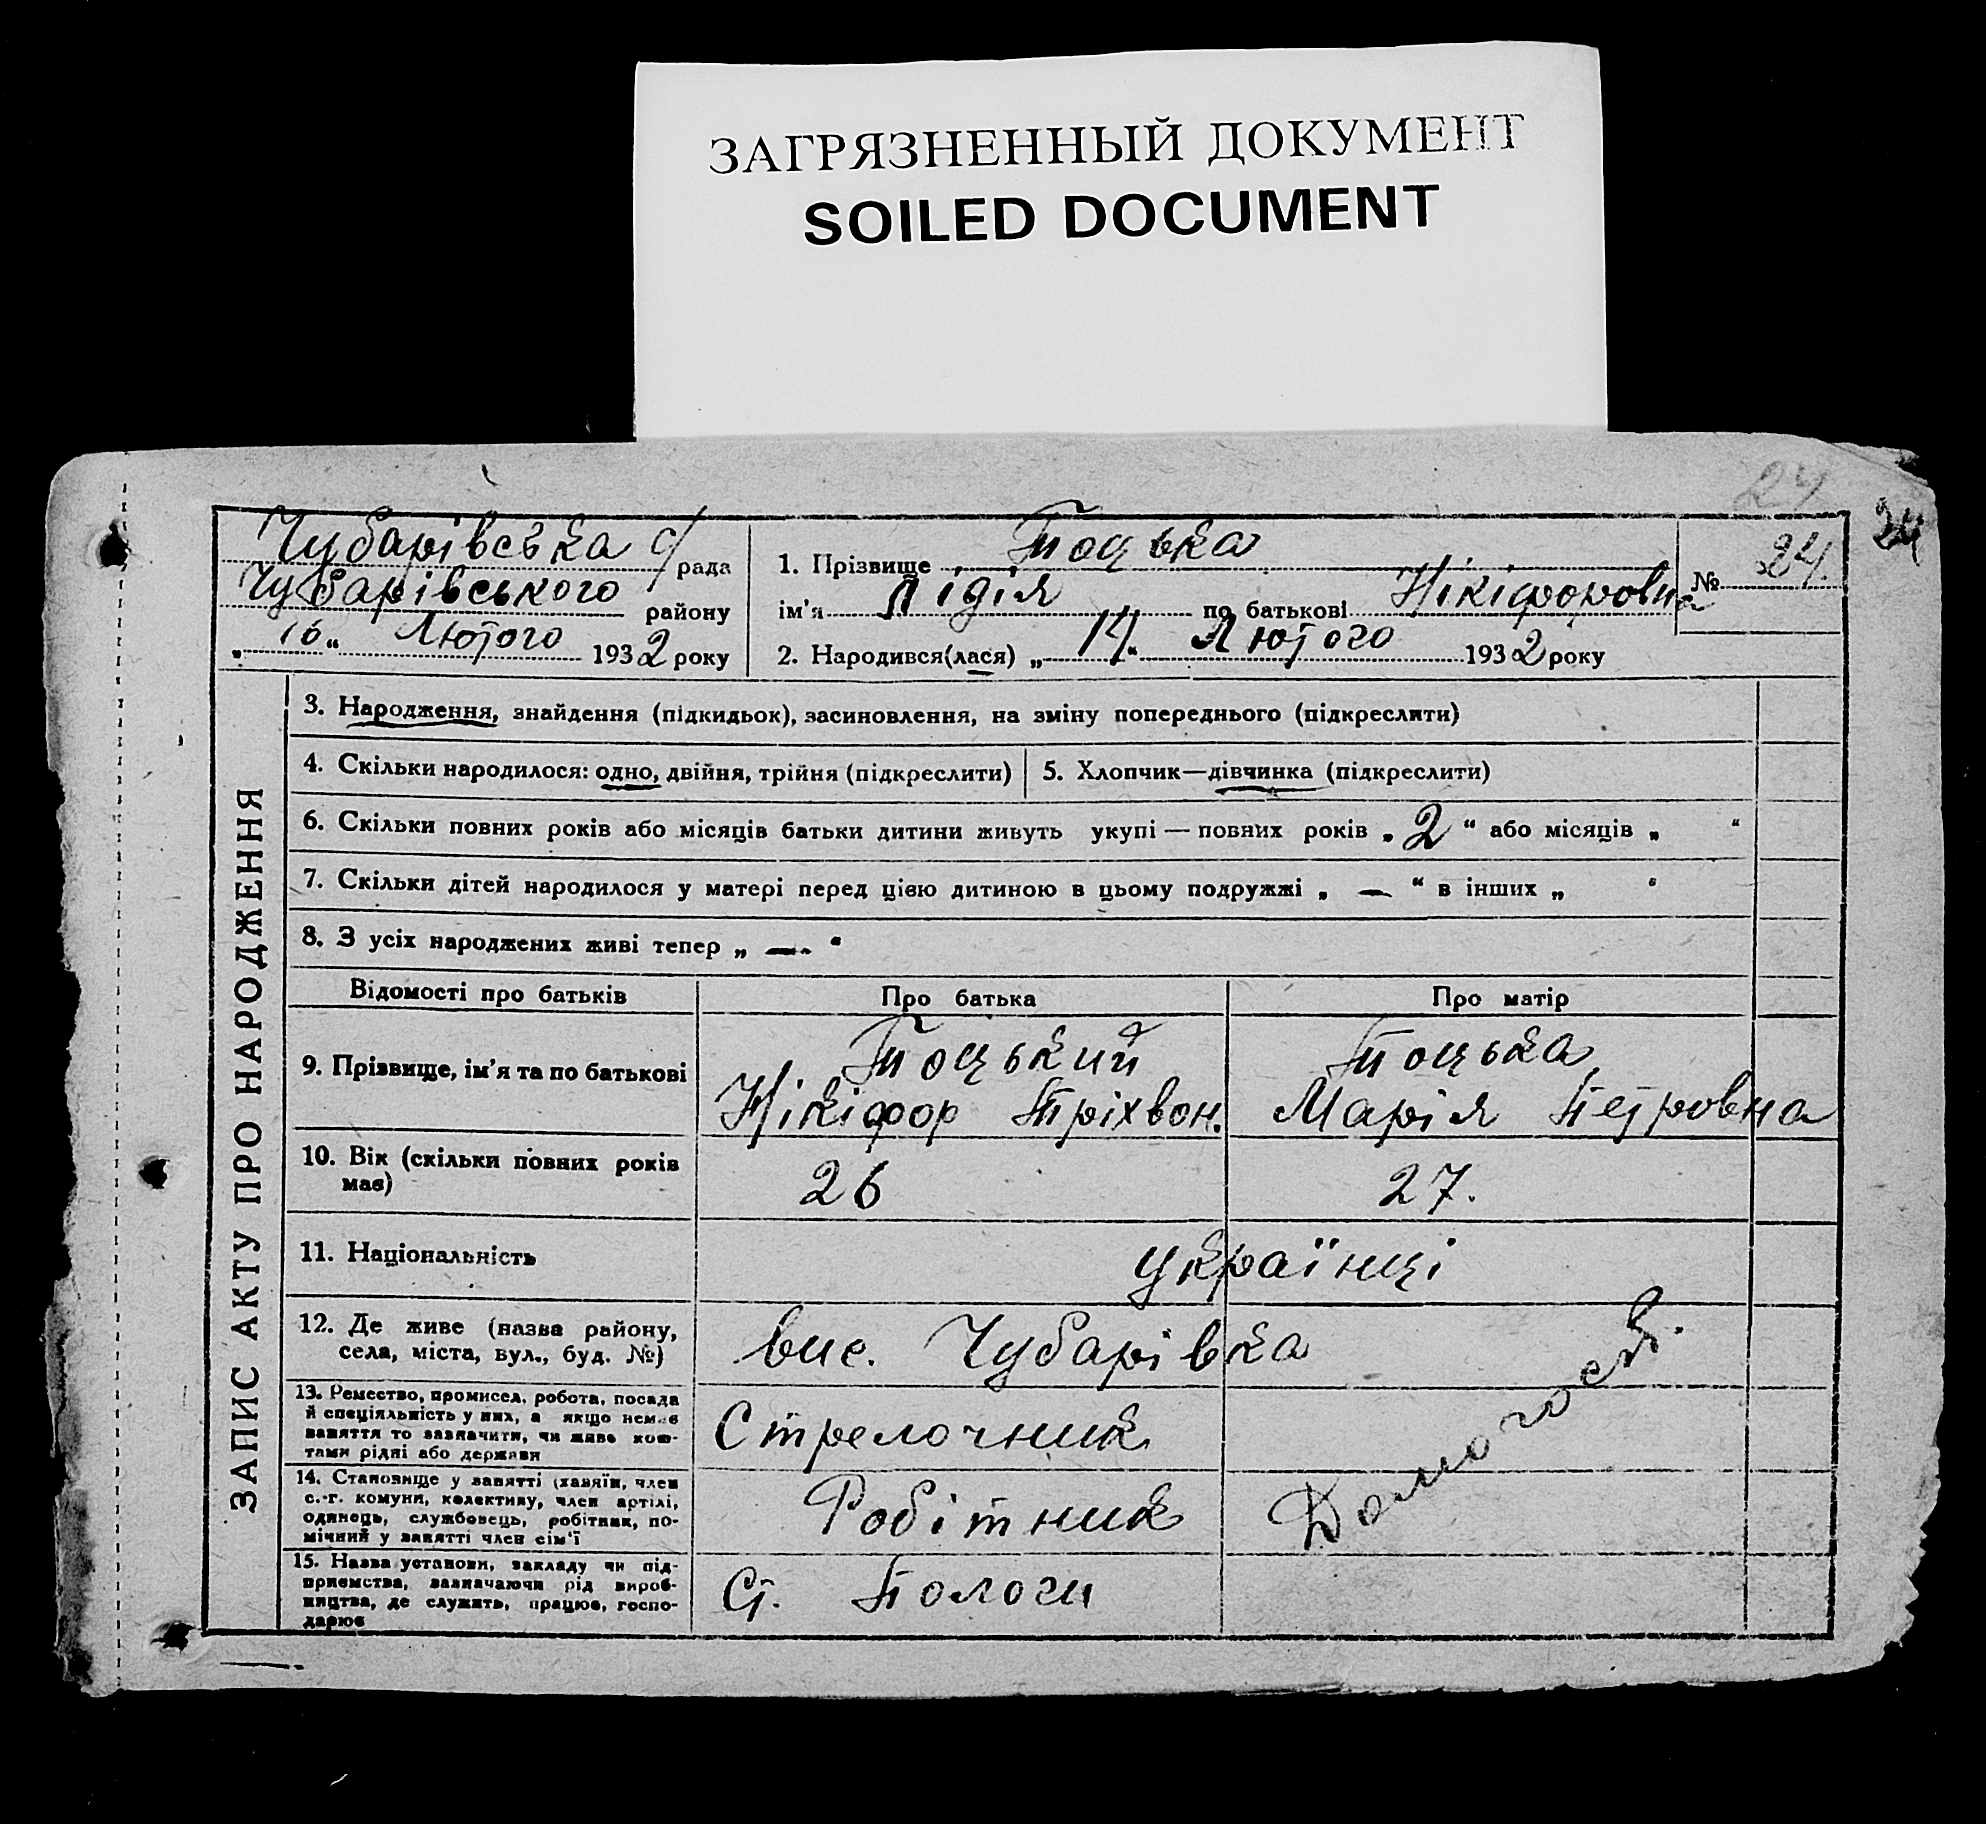 ЗАГРЯЗНЕННЫЙ ДОКУМЕНТ
SOILED DOCUMENT
24
24
Чубарівська с/рада
Чубарівського району
"16" Лютого 1932 року
1. Прізвище Тоцька
ім'я Лідія по батькові Нікіфоровна
№ 24.
2. Народився(лася) „14" Лютого 1932 року
ЗАПИС АКТУ ПРО НАРОДЖЕННЯ
3. Народження, знайдення (підкидьок), засиновлення, на зміну попереднього (підкреслити)
4. Скільки народилося: одно, двійня, трійня (підкреслити)
5. Хлопчик—дівчинка (підкреслити)
6. Скільки повних років або місяців батьки дитини живуть укупі — повних років „ 2 “ або місяців „ “
7. Скільки дітей народилося у матері перед цією дитиною в цьому подружжі „ — “ в інших „ “
8. З усіх народжених живі тепер „ — “
Відомості про батьків
Про батька
Про матір
9. Прізвище, ім'я та по батькові
Тоцький
Нікіфор Тріхвон.
Тоцька
Марія Петровна
10. Вік (скільки повних років
має)
26
27.
11. Національність
українці
12. Де живе (назва району,
села, міста, вул., буд. №)
вис. Чубарівка
13. Ремество, промисел, робота, посада
й спеціяльність у них, а якщо немає
заняття то зазначити, чи живе кош-
тами рідні або держави
Стрелочник
Домогосп.
14. Становище у занятті (хазяїн, член
с.-г. комуни, колективу, член артілі,
одинець, службовець, робітник, по-
мічний у занятті член сім'ї
Робітник
15. Назва установи, закладу чи під-
приємства, зазначаючи рід вироб-
ництва, де служить, працює, госпо-
дарює
Ст. Пологи